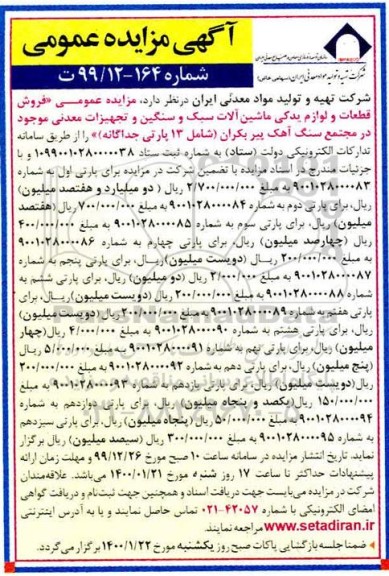 آگهی مزایده عمومی
شماره ۱۶۴-۹۹/۱۲ ت
شرکت تهیه و تولید مواد معدنی ایران (سهامی خاص)
شرکت تهیه و تولید مواد معدنی ایران درنظر دارد، مزایده عمومی «فروش
قطعات و لوازم یدکی ماشین آلات سبک و سنگین و تجهیزات معدنی موجود
در مجتمع سنگ آهک پیر بکران (شامل ۱۳ پارتی جداگانه)» را از طریق سامانه
تدارکات الکترونیکی دولت (ستاد) به شماره ثبت ستاد ۱۰۹۹۰۰۱۰۲۸۰۰۰۰۳۸ و با
جزئیات مندرج در اسناد مزایده با تضمین شرکت در مزایده برای پارتی اول به شماره
۹۰۰۱۰۲۸۰۰۰۰۸۳ به مبلغ ۲/۷۰۰/۰۰۰/۰۰۰ ریال ( دو میلیارد و هفتصد میلیون)
ریال، برای پارتی دوم به شماره ۹۰۰۱۰۲۸۰۰۰۰۸۴ به مبلغ ۷۰۰/۰۰۰/۰۰۰ ریال (هفتصد
میلیون) ریال، برای پارتی سوم به شماره ۹۰۰۱۰۲۸۰۰۰۰۸۵ به مبلغ ۴۰۰/۰۰۰/۰۰۰
ریال (چهارصد میلیون) ریال، برای پارتی چهارم به شماره ۹۰۰۱۰۲۸۰۰۰۰۸۶
به مبلغ ۲۰۰/۰۰۰/۰۰۰ ریال (دویست میلیون) ریال، برای پارتی پنجم به شماره
۹۰۰۱۰۲۸۰۰۰۰۸۷ به مبلغ ۲/۰۰۰/۰۰۰ ریال (دو میلیون) ریال، برای پارتی ششم به
شماره ۹۰۰۱۰۲۸۰۰۰۰۸۸ به مبلغ ۲۰۰/۰۰۰/۰۰۰ ریال (دویست میلیون) ریال، برای
پارتی هفتم به شماره ۹۰۰۱۰۲۸۰۰۰۰۸۹ به مبلغ ۲۰۰/۰۰۰/۰۰۰ ریال (دویست میلیون)
ریال، برای پارتی هشتم به شماره ۹۰۰۱۰۲۸۰۰۰۰۹۰ به مبلغ ۴/۰۰۰/۰۰۰ ریال (چهار
میلیون) ریال، برای پارتی نهم به شماره ۹۰۰۱۰۲۸۰۰۰۰۹۱ به مبلغ ۵/۰۰۰/۰۰۰ ریال
(پنج میلیون) ریال، برای پارتی دهم به شماره ۹۰۰۱۰۲۸۰۰۰۰۹۲ به مبلغ ۲۰۰/۰۰۰/۰۰۰
ریال (دویست میلیون) ریال، برای پارتی یازدهم به شماره ۹۰۰۱۰۲۸۰۰۰۰۹۳ به مبلغ
۱۵۰/۰۰۰/۰۰۰ ریال (یکصد و پنجاه میلیون) ریال، برای پارتی دوازدهم به شماره
۹۰۰۱۰۲۸۰۰۰۰۹۴ به مبلغ ۵۰/۰۰۰/۰۰۰ ریال (پنجاه میلیون) ریال، برای پارتی سیزدهم
به شماره ۹۰۰۱۰۲۸۰۰۰۰۹۵ به مبلغ ۳۰۰/۰۰۰/۰۰۰ ریال (سیصد میلیون) ریال برگزار
نماید. تاریخ انتشار مزایده در سامانه ساعت ۱۰ صبح مورخ ۹۹/۱۲/۲۶ و مهلت زمان ارائه
پیشنهادات حداکثر تا ساعت ۱۷ روز شنبه مورخ ۱۴۰۰/۰۱/۲۱ می‌باشد. علاقه‌مندان
شرکت در مزایده می‌بایست جهت دریافت اسناد و همچنین جهت ثبت‌نام و دریافت گواهی
امضای الکترونیکی با شماره ۴۲۰۵۷-۰۲۱ تماس حاصل نمایند و یا به آدرس اینترنتی
www.setadiran.ir مراجعه نمایند.
ضمنا جلسه بازگشایی پاکات صبح روز یکشنبه مورخ ۱۴۰۰/۱/۲۲ برگزار می‌گردد.